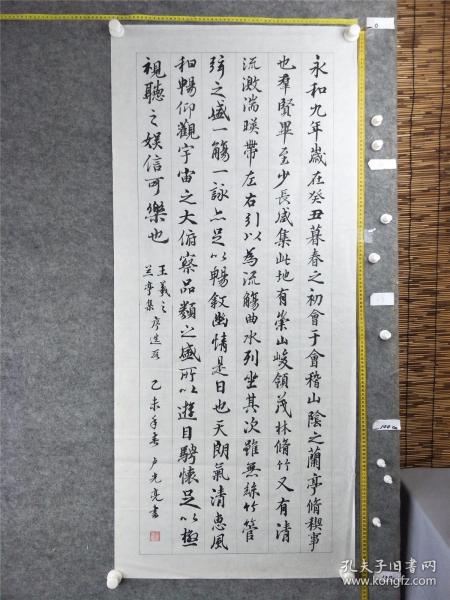 永和九年歲在癸丑暮春之初會于會稽山陰之蘭亭脩稧事
也羣賢畢至少長咸集此地有崇山峻領茂林脩竹又有清
流激湍暎帶左右引以為流觴曲水列坐其次雖無絲竹管
弦之盛一觴一詠亦足以暢叙幽情是日也天朗氣清惠風
和暢仰觀宇宙之大俯察品類之盛所以遊目騁懷足以極
視聽之娛信可樂也
王羲之
兰亭集序选句
乙未年春 卢光亮書
孔夫子旧书网
www.kongfz.com